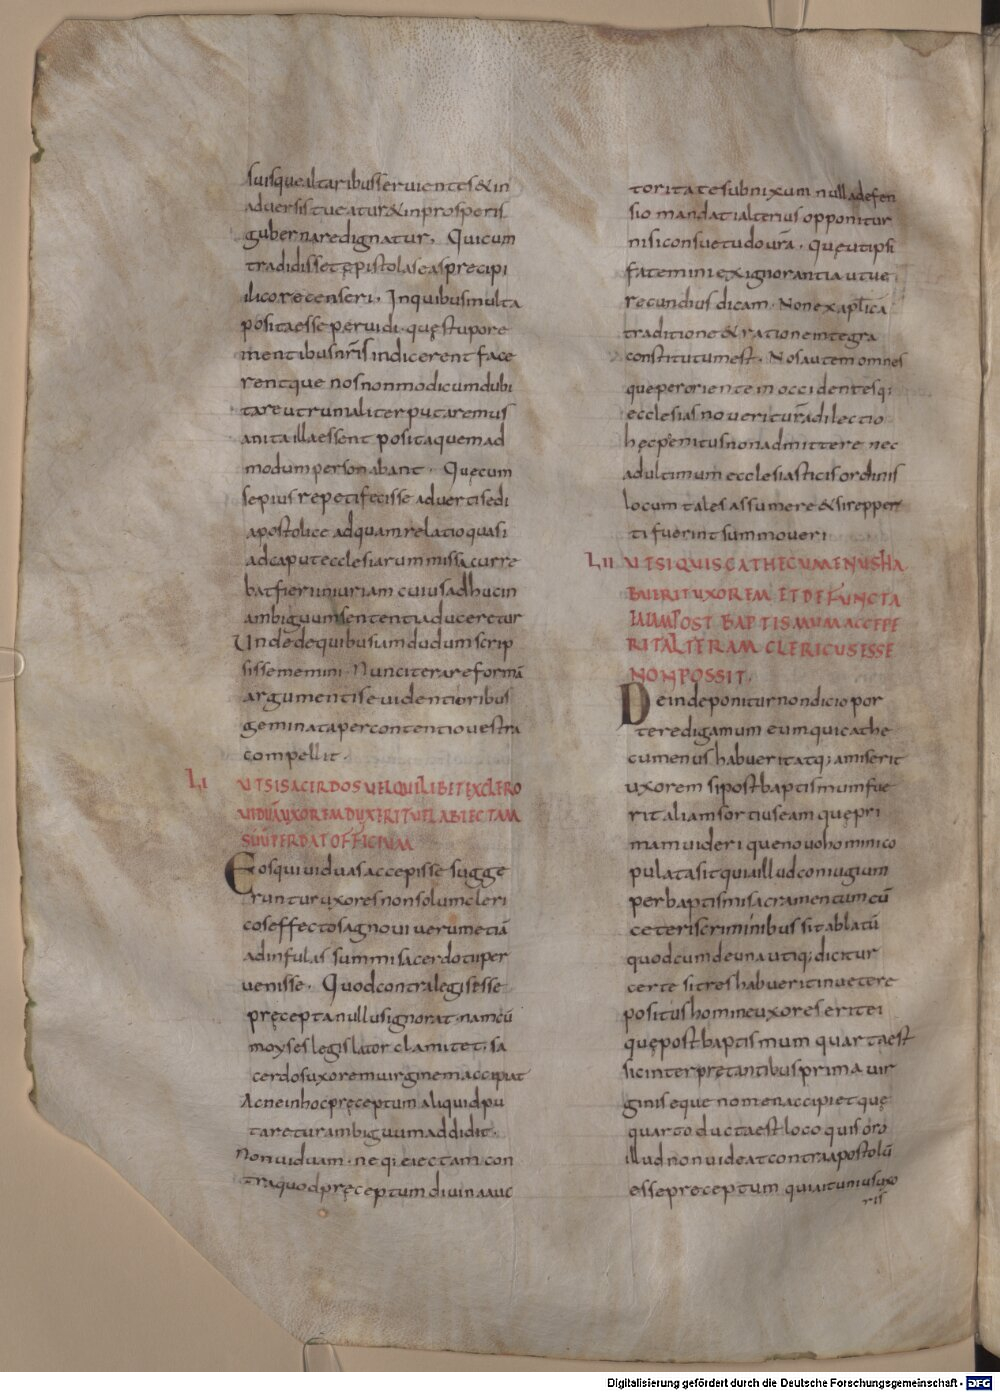 suisque altaribus seruientes & in
aduersis tueatur & in prosperis
gubernare dignatur. Qui cum
tradidisset epistolas eas precipi
ilico recenseri. In quibus multa
posita esse peruidi. quę stupore
mentibus nr̄is indicerent face
rentque nos non modicum dubi
tare utrum aliter putaremus
an ita illa essent posita quemad
modum personabant. Quę cum
sepius repeti fecisse aduerti sedi
apostolice ad quam relatio quasi
ad caput ecclesiarum missa curre
bat fieri iniuriam cuius adhuc in
ambiguum sententia duceretur
Unde de quibus iam dudum scrip
sisse memini. Nunc iterare formā
argumentis euidentioribus
geminata percontentio uestra
compellit.
LI UT SI SACERDOS UEL QUILIBET EX CLERO
UIDUĀ UXOREM DUXERIT UEL ABIECTAM
SUŪ PERDAT OFFICIUM
Eos qui uiduas accepisse sugge
runtur uxores non solum cleri
cos effectos agnoui uerum etiā
ad infulas summi sacerdotii per
uenisse. Quod contra legis esse
pręcepta nullus ignorat. nam cū
moyses legislator clamitet. sa
cerdos uxorem uirginem accipiat
Ac ne in hoc pręceptum aliquid pu
taretur ambiguum addidit.
Non uiduam. neq; eiectam con
tra quod pręceptum diuina auc
toritate subnixum nulla defen
sio mandati alterius opponitur
nisi consuetudo urā. Quę ut ipsi
fatemini ex ignorantia ut ue
recundius dicam. Non ex aptlica
traditione & ratione integra
constitutum est. Nos autem omnes
que per oriente in occidentesq;
ecclesias nouerit urā dilectio
hęc pęnitus non admittere nec
ad ultimum ecclesiasticis ordinis
locum tales assumere & si repper
ti fuerint summoueri
LII UT SI QUIS CATHECUMENUS HA
BUERIT UXOREM ET DEFUNCTA
ILLAM POST BAPTISMUM ACCEPE
RIT ALTERAM CLERICUS ESSE
NON POSSIT.
Deinde ponitur non dicio por
tere digamum eum qui cathe
cumenus habuerit atq; amiserit
uxorem si post baptismum fue
rit aliam sortius eam quę pri
mam uideri que nouo homini co
pulata sit quia illud coniugium
per baptismi sacramentum cū
ceteris criminibus sit ablatū
quod cum de una utiq; dicitur
certe si tres habuerit in uetere
positus homine uxores erit ei
quę post baptismum quarta est
sic interpretantibus prima uir
ginisque nomen accipiet quę
quarto ducta est loco quis oro
illud non uideat contra apostolū
esse preceptum qui ait unius uxo
ris
Digitalisierung gefördert durch die Deutsche Forschungsgemeinschaft - DFG